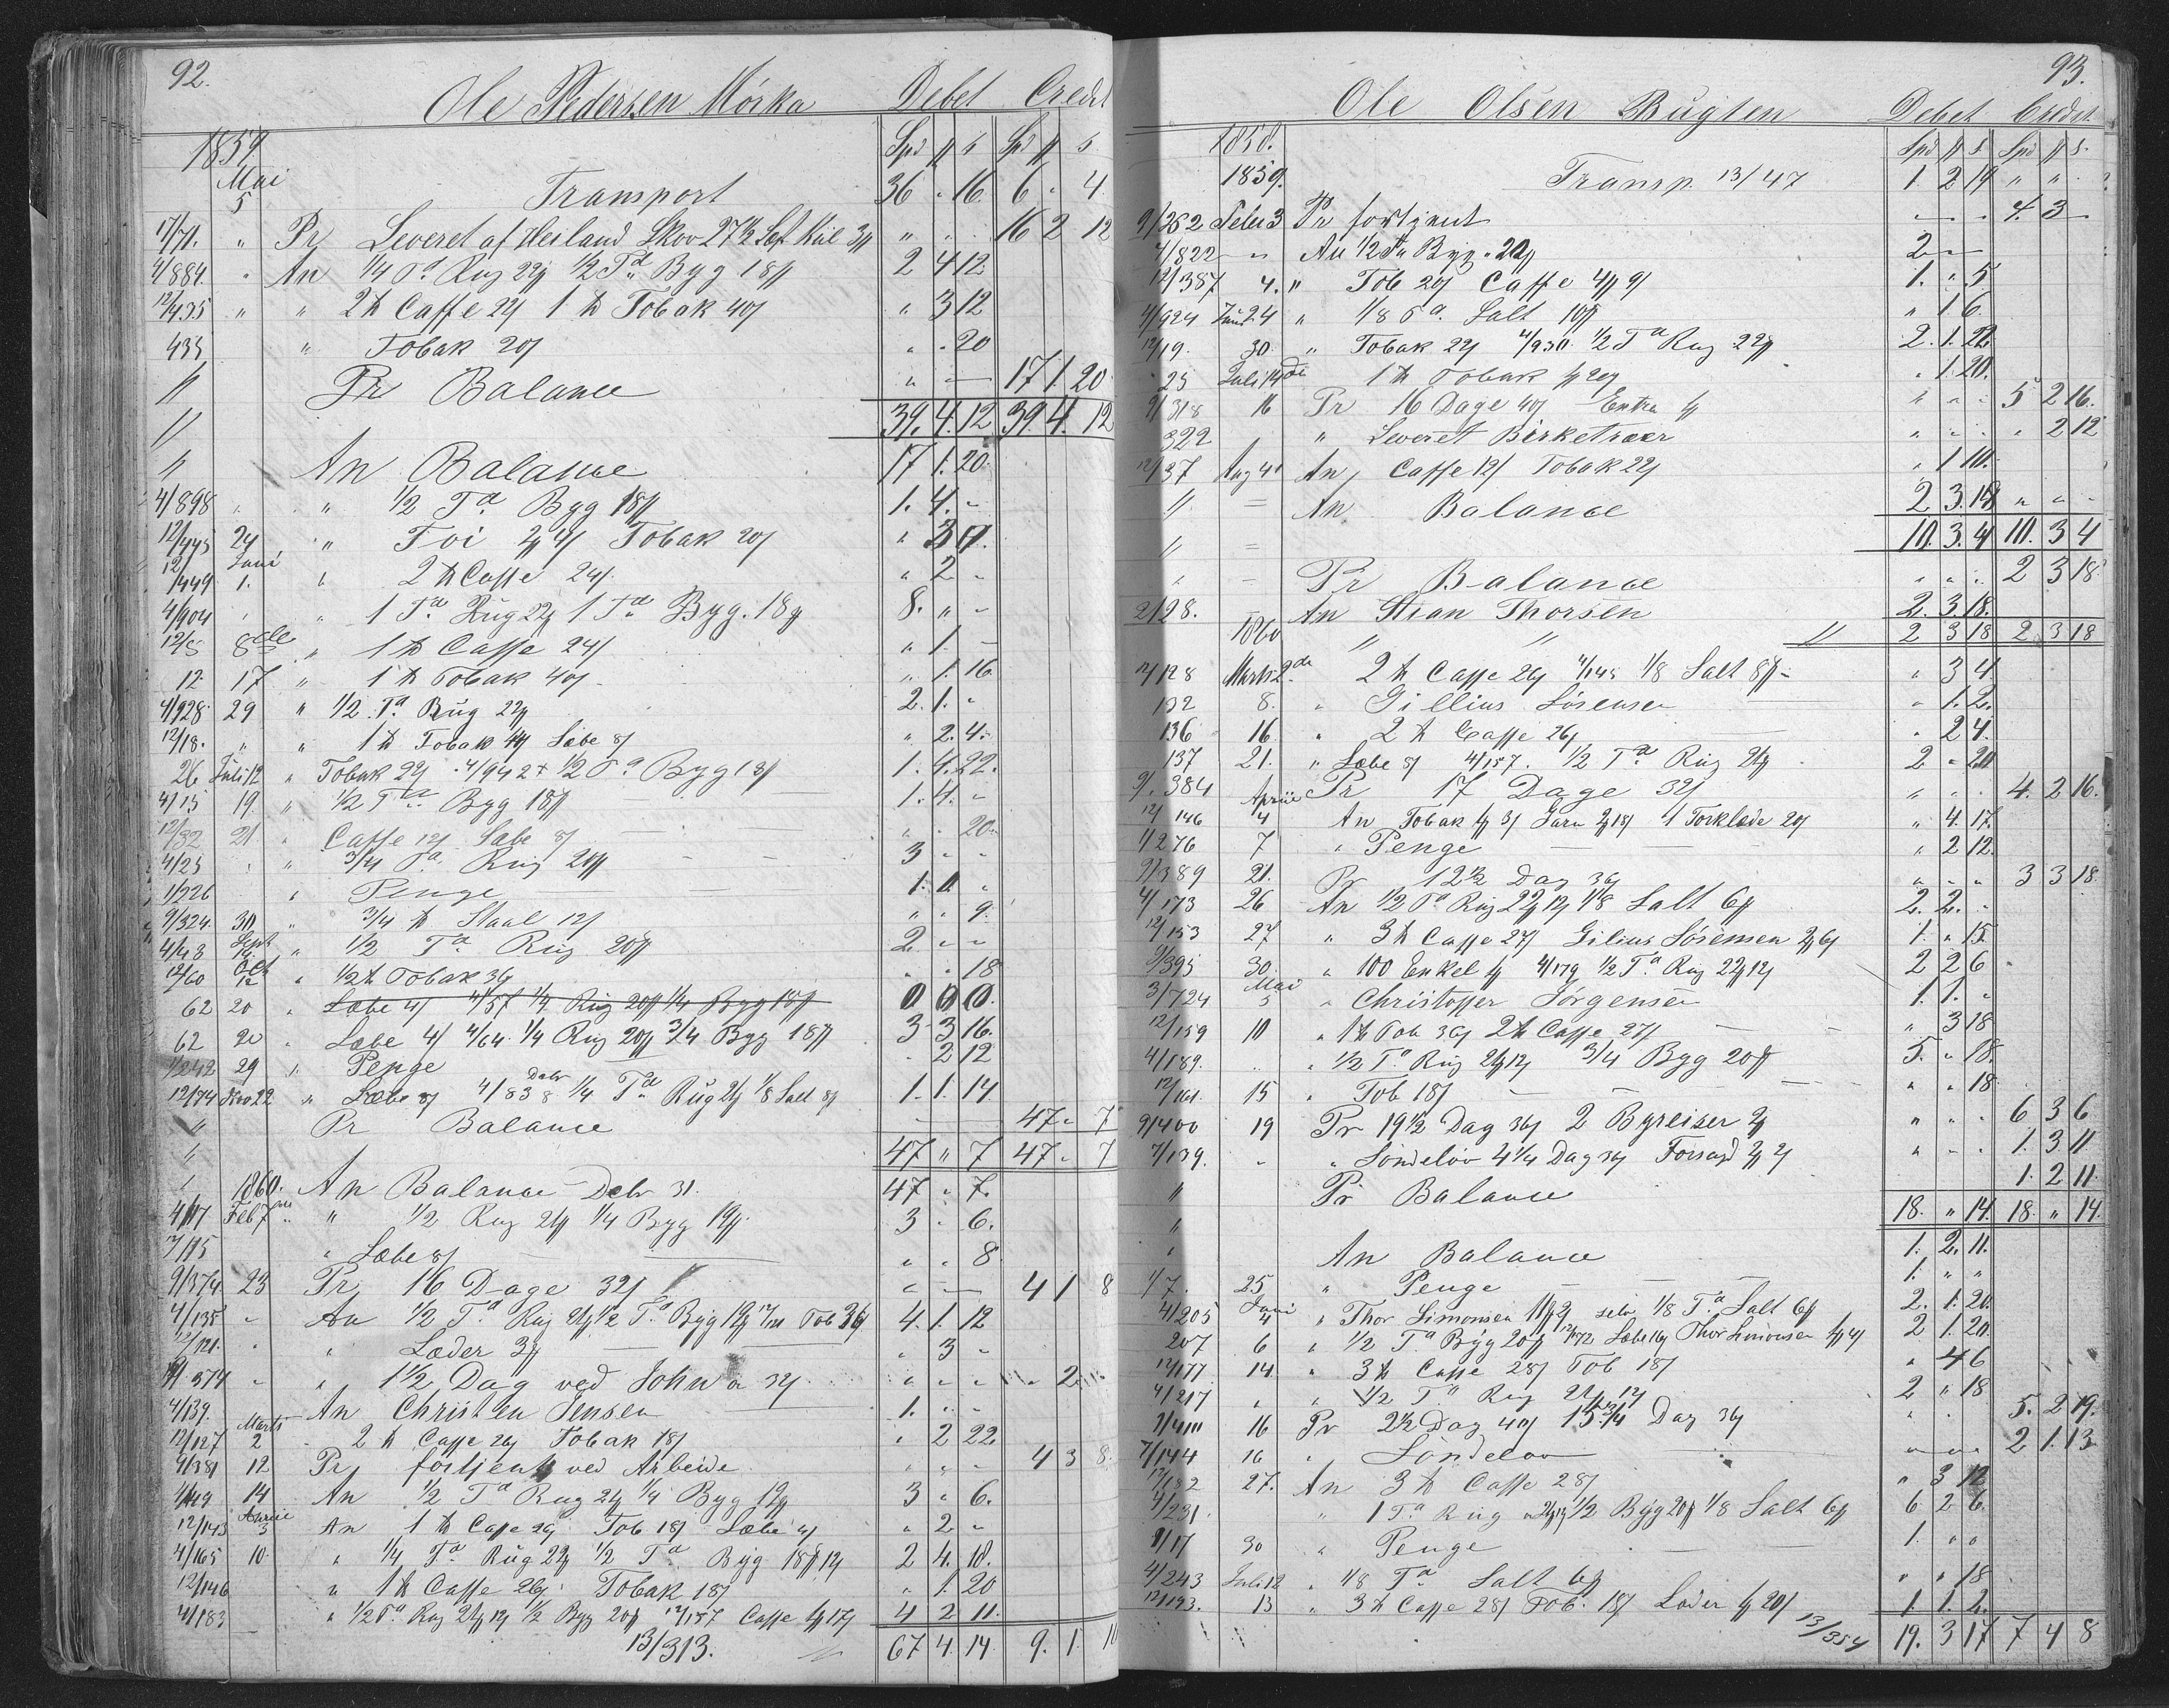 92.
Ole Pedersen Mörka Debet Credit
1859 Spd # s Spd # s
Mai 5 Transport 36 " 16 6 " 4
17/71. " Pr Leveret af Heiland Skov 27½ Læst Kul 3# " " 16 2 12
4/884. " An ¼ Td Rug 22# ½ Td Byg 18# 2 4 12
12/435 " " 2 ℔ Caffe 24 1 ℔ Tobak 40s " 3 12
435 " Tobak 20s " " 20
" Pr Balance " — 17 1. 20
" 39. 4. 12. 39 4. 12
" An Balance 17 1. 20.
4/898 " " ½ Td Byg 18# 1. 4. "
12/445 24 " Tobak 20s
12/449 Juni 1. " 2 ℔ Caffe 24s. " 2 "
4/904 " " 1 Td Rug 22# 1 Td Byg. 18# 8. " "
12/5 8de " 1 ℔ Caffe 24s " 1. —
12 17 " 1 ℔ Tobak 40s " 1. 16
4/928. 29 " ½ Td Rug 22# 2. 1. "
12/18. " " 1 ℔ Tobak 44s Sæbe 8s " 2. 4.
26 Juli 12 " Tobak 22s 4/942 ½ Td Byg 18# 1. 4. 22.
4/15 19 " ½ Td Byg 18# 1. 4. "
12/32 21 " Caffe 12s Sæbe 8s " " 20
4/25 " " ¾ Td Rug 20# 3 " "
1/226 " Penge 1. 0 "
9/324. 30 " ¾ ℔ Staal 12s " " 9.
4/48 Sept 14 " ½ Td Rug 20# 2 " "
12/60 Oct 12 " ½ ℔ Tobak 36s " " 18
62 20 " Sæbe 4s 4/57 ¼ Rug 20# ¼ Byg 18# 0 0 0.
62 20 " Sæbe 4s 4/64. ¼ Rug 20# ¾ Byg 18# 3 3 16.
1/242 29 " Penge " 2 12
12/74 Nov 22 " Sæbe 8s 4/83 Debr 8 ¼ Td Rug 21# ⅛ Salt 8s 1. 1. 14
" Pr Balance — 47 " 7
" 47 " 7 47 " 7
" 1860. An Balance Debr 31. 47 " 7.
4/117 Feb 7 " " ½ Rug 21# ¼ Byg 19#. 3 " 6.
7/15 " Sæbe 8s " " 8
9/374 23 Pr 16 Dage 32s " — 4 1 8
4/135 " An ½ Td Rug 21# ½ Td Byg 19# 12/121 Tob 36s 4. 1. 12
12/121. " " Læder 3# " 3 "
9/374 " " 1½ Dag ved John a 32s " " " " 2
4/139. An Christen Jensen 1. " "
12/127 Marts 2 " 2 ℔ Caffe 26s Tobak 18s " 2 22.
9/381 12 Pr fortjent ved Arbeide " " " 4 3 8.
4/149 14 An ½ Td Rug 21# ¼ Byg 19# 3 " 6.
12/143 April 3 An 1 ℔ Caffe 26s Tob 18s Sæbe 4s " 2 "
4/165 10. " ¼ Td Rug 22# ½ Td Byg 18# 12s 2 4. 18.
12/146 " 1 ℔ Caffe 26s Tobak 18s " 1. 20
4/183 " ½ Td Rug 21# 12s ½ Byg 20# 12/157 Caffe 1# 17s 4 2 11.
13/313. 67 4. 14 9. 1. 10
93.
Ole Olsen Bugten Debet Credit
1858. Spd # s. Spd # s.
1859. Transp. 13/47 1. 2 19 " " "
9/262 Febr 3 Pr fortjent — " 4. 3 —
4/822 " An ½ Td Byg 20# 2 — —
12/387 4. " Tob 20s Caffe 4# 9s 1. " 5.
4/924 Juni 24 " ⅛ Td Salt 10# " 1 6
12/19. 30 " Tobak 22s 4/930 ½ Td Rug 22# 2. 1. 22.
25 Juli 14de 1 ℔ Tobak 1# 20s " 1. 20.
9/318 16 Pr 16 Dage 40s Extra 1# " " " 5 2 16.
322 " Leveret Birketræer " " " " 2 12
12/37 Aug 4 An Caffe 12s Tobak 22s " 1 10.
" = An Balance 2 3. 18 " " "
" = 10. 3. 4 10. 3 4
" = Pr Balance " " " 2 3 18.
2/28. An Stian Thorsen 2. 3 18.
1860 " " 2 3 18 2. 3 18
12/128 Marts 2de 2 ℔ Caffe 26s 4/145 ⅛ Salt 8# " 3 4.
132 8. " Gillius Sörensen " 1. 2.
136 16 " 2 ℔ Caffe 26s " 2 4.
137 21. " Sæbe 8s 4/157. ½ Td Rug 21# 2 " 20
9/384 Pr 17 Dage 32s " " " 4. 2 16.
12/146 April 4 An Tobak 1# 3s Garn 2# 18s 1 Forklæde 20s " 4. 17.
1/276 7 " Penge " 2 12.
9/389 21. Pr 12½ Dag 36s " " " 3 3 18
4/173 26 An ½ Td Rug 22# 12s ⅛ Salt 6# 2. 2. "
12/153 27 " 3 ℔ Caffe 27s Gilius Sörensen 2# 6s 1. " 15.
9/395 30. " 100 Enkel 1# 4/179 ½ Td Rug 22# 12s 2 2 6
3/724 Mai 5 " Christoffer Jörgensen 1. 1. "
12/159 10 " 1 ℔ Tob 36s 2 ℔ Caffe 27s " 3 18
4/189. " " ½ Td Rug 21# 12s ¾ Byg 20# 5. " 18.
12/161 15 " Tob 18s " " 18
9/400 19 Pr 19½ Dag 36s 2 Byreiser 2# " " " 6 3 6
7/139. " " Söndelöv 4¼ Dag 36s 3# 2s " " " 1. 3 11
" Pr Balance 1. 2 11.
" 18. " 14. 18. " 14.
" An Balance 1. 2. 11.
1/7. 25 " Penge 1. " "
4/205 Juni 4 " Thor Simonsen 11# 2s selv ⅛ Td Salt 6# 2. 1. 20.
207 6 " ½ Td Byg 20# 12/172 Sæbe 16s Thor Simonsen 1# 4s 2 1. 20.
12/177 14. " 3 ℔ Caffe 28s Tob 18s " 4 6
4/217 " " ½ Td Rug 21# 12s 2 " 18
9/410 16 Pr 2½ Dag 40s 15¾ Dag 36s " " 5. 2 19.
7/144 16 " Söndelöv " " " 2 1. 13
12/182 27. An 3 ℔ Caffe 28s " 3 12
4/231. " 1 Td Rug 21# 12s ½ Byg 20# ⅛ Salt 6# 6 2 6
1/17 30 " Penge 1. " "
4/243 Juli 12 " ⅛ Td Salt 6# " " 18
12/193. 13 " 3 ℔ Caffe 28s Tob. 18s Læder 1# 20s 1 1. 2.
13/354 19. 3 17 7 4 8